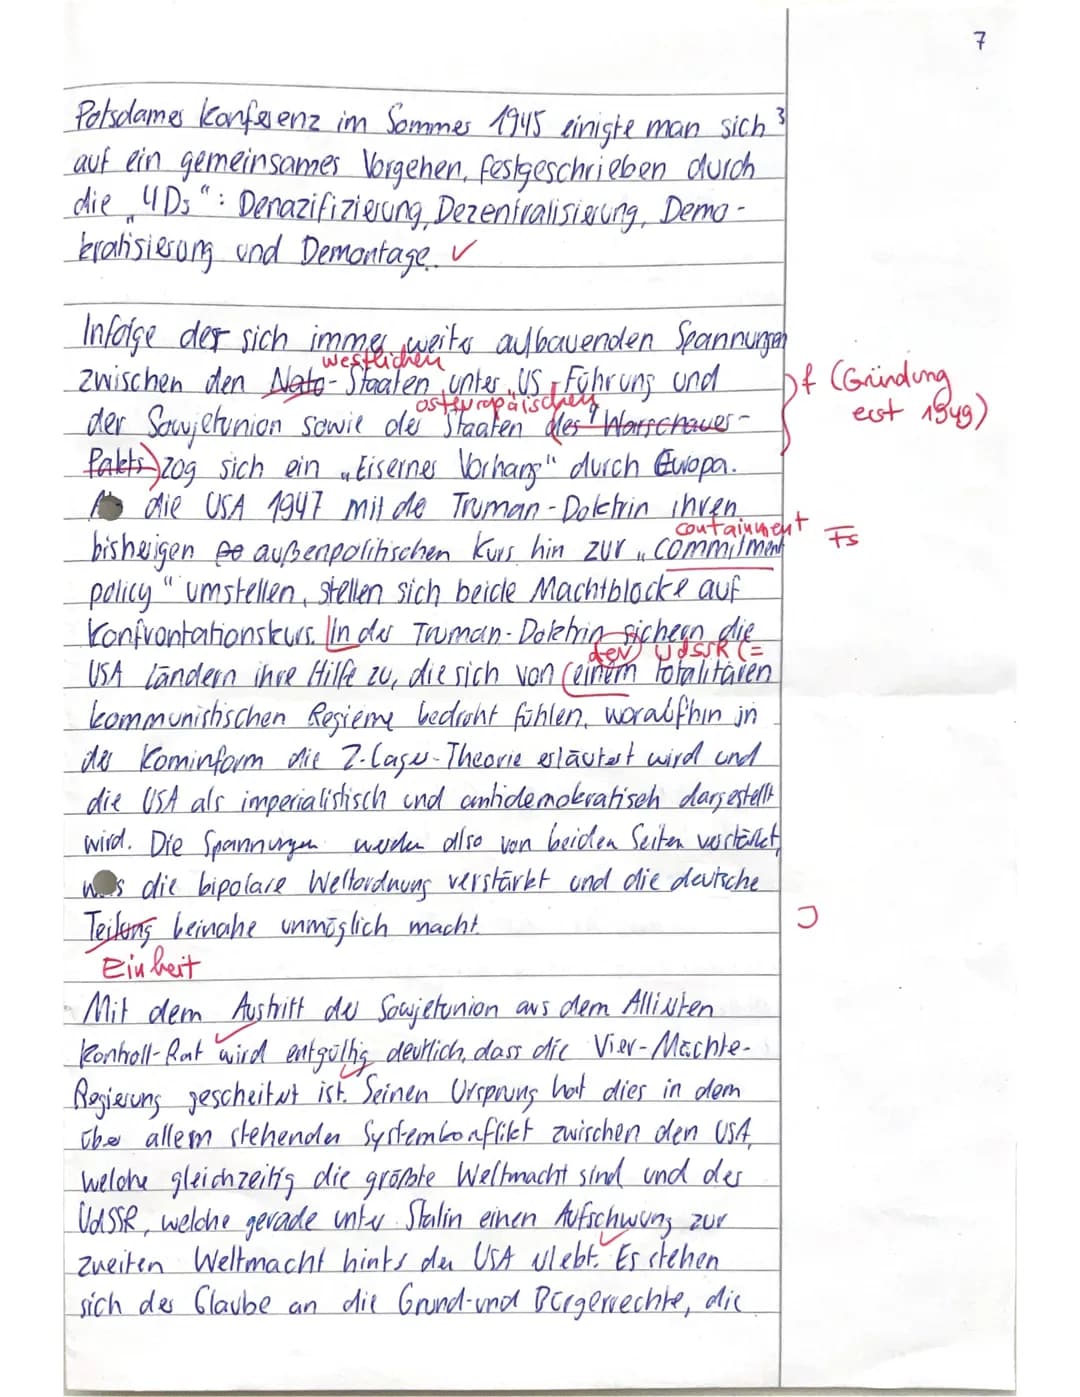 7
Potsdamer Konferenz im Sommer 1945 einigte man sich 3
auf ein gemeinsames Vorgehen, festgeschrieben durch
die „4Ds“: Denazifizierung, Dezentralisierung, Demo-
kratisierung und Demontage. ✓
Infolge der sich immer weiter aufbauenden Spannungen
westlichen
zwischen den Nato-Staaten unter US-Führung und
f (Gründung
osteuropäischen
erst 1949)
der Sowjetunion sowie der Staaten des Warschauer-
Pakts) zog sich ein „Eiserner Vorhang“ durch Europa.
die USA 1947 mit der Truman-Doktrin ihren
containment
Fs
bisherigen außenpolitischen Kurs hin zur „commitment
policy“ umstellen, stellen sich beide Machtblöcke auf
Konfrontationskurs. In der Truman-Doktrin sichern die
der UdSSR (=
USA Ländern ihre Hilfe zu, die sich von (einem totalitären
kommunistischen Regieme bedroht fühlen, woraufhin in
der Kominform die 2-Lager-Theorie erläutert wird und
die USA als imperialistisch und antidemokratisch dargestellt
wird. Die Spannungen werden also von beiden Seiten verstärkt,
was die bipolare Weltordnung verstärkt und die deutsche
Teilung beinahe unmöglich macht.
Einheit
Mit dem Austritt der Sowjetunion aus dem Alliierten
Kontroll-Rat wird entgültig deutlich, dass die Vier-Mächte-
Regierung gescheitert ist. Seinen Ursprung hat dies in dem
über allem stehenden Systemkonflikt zwischen den USA,
welche gleichzeitig die größte Weltmacht sind und der
UdSSR, welche gerade unter Stalin einen Aufschwung zur
zweiten Weltmacht hinter der USA erlebt. Es stehen
sich der Glaube an die Grund-und Bürgerrechte, die